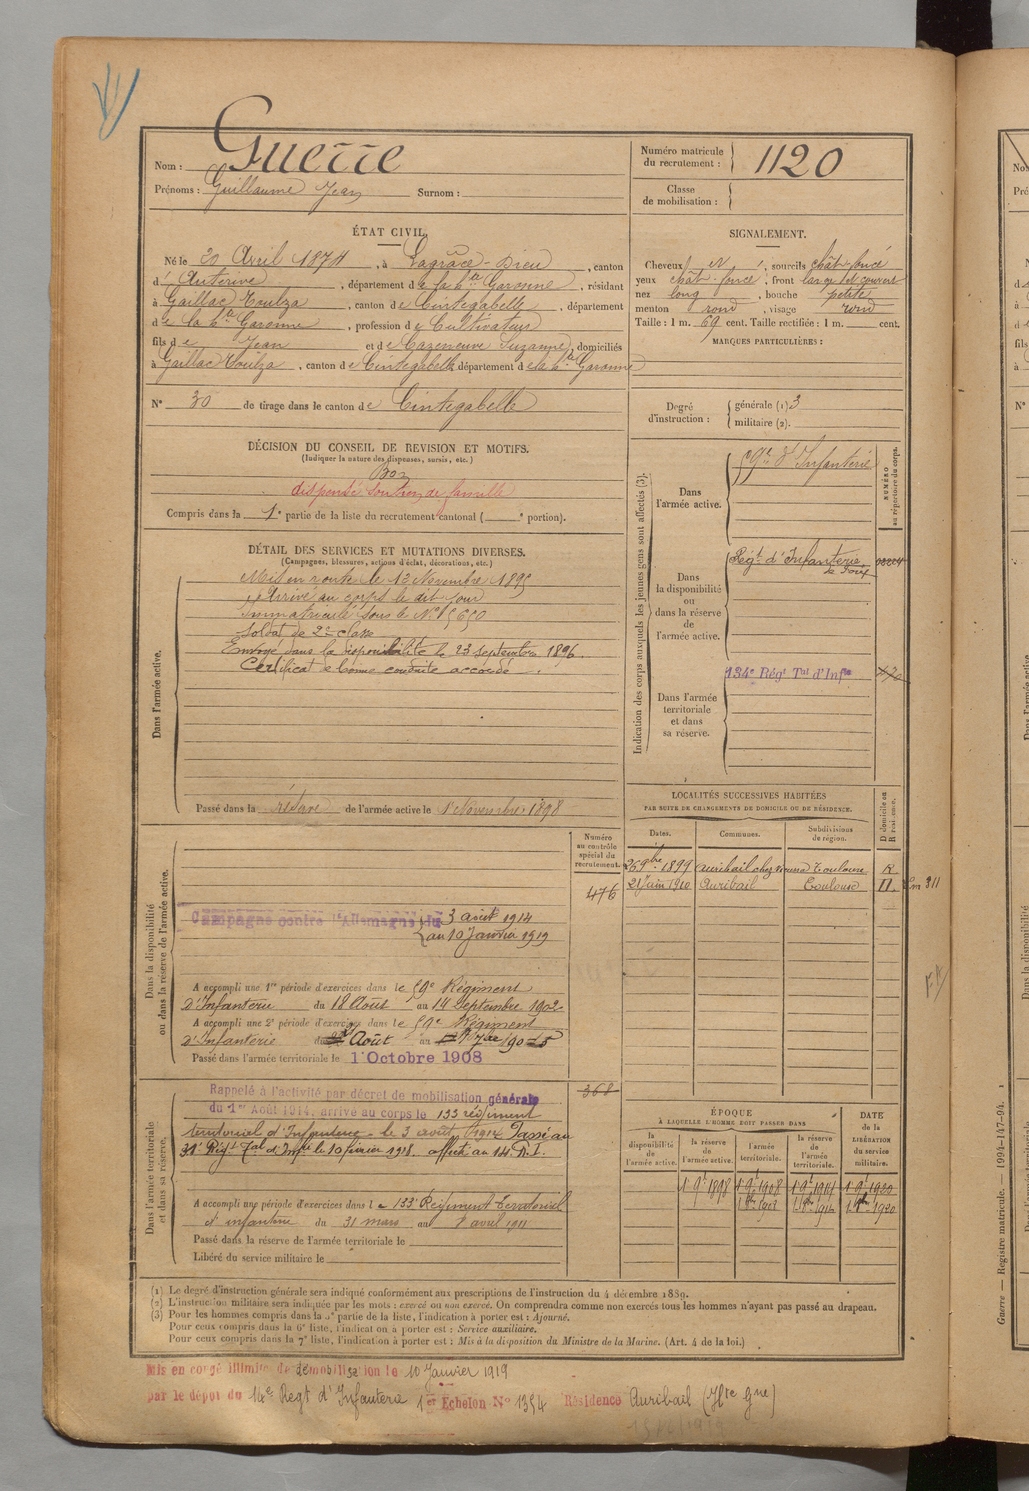 Nom : Guerre
Prénoms : Guillaume Jean Surnom :
Numéro matricule du recrutement : 1120
Classe de mobilisation :
ÉTAT CIVIL.
Né le 20 Avril 1874, à Lagrâce-Dieu, canton
d' Auterive, département de la hte Garonne, résidant
à Gaillac Toulza, canton de Cintegabelle, département
de la hte Garonne, profession de Cultivateur
fils de Jean et de Cazeneuve Suzanne, domiciliés
à Gaillac Toulza, canton de Cintegabelle département de la hte Garonne
N° 30 de tirage dans le canton de Cintegabelle
SIGNALEMENT.
Cheveux et, sourcils chât-foncé
yeux chât-foncé, front large et couvert
nez long, bouche petite
menton rond, visage rond
Taille : 1 m. 69 cent. Taille rectifiée : 1 m. cent.
MARQUES PARTICULIÈRES :
Degré d'instruction : générale (1) 3
militaire (2).
DÉCISION DU CONSEIL DE REVISION ET MOTIFS.
(Indiquer la nature des dispenses, sursis, etc.)
Bon
dispensé soutien de famille
Compris dans la 1e partie de la liste du recrutement cantonal ( e portion).
DÉTAIL DES SERVICES ET MUTATIONS DIVERSES.
(Campagnes, blessures, actions d'éclat, décorations, etc.)
Dans l'armée active.
Mis en route le 13 Novembre 1895
Arrivé au corps le dit jour
Immatriculé sous le N° 5650
Soldat de 2e classe
Envoyé dans la disponibilité le 23 septembre 1896.
Certificat de bonne conduite accordé.
Passé dans la réserve de l'armée active le 1 Novembre 1898
Indication des corps auxquels les jeunes gens sont affectés (3).
NUMÉRO au répertoire du corps.
Dans l'armée active.
59e d'Infanterie
Dans la disponibilité ou dans la réserve de l'armée active.
Régt d'Infanterie
de Foix
Dans l'armée territoriale et dans sa réserve.
134e Régt Tal d'Infie
LOCALITÉS SUCCESSIVES HABITÉES
PAR SUITE DE CHANGEMENTS DE DOMICILE OU DE RÉSIDENCE.
Dates. Communes. Subdivisions de région. D domicile ou R résidence.
26 9bre 1899 Auribail chez Toulouse R
21 Juin 1910 Auribail Toulouse D.
311
Numéro au contrôle spécial du recrutement.
476
Dans la disponibilité ou dans la réserve de l'armée active.
Campagne contre l'Allemagne du 3 août 1914
au 10 Janvier 1919
A accompli une 1re période d'exercices dans le 59e Régiment
d'Infanterie du 18 Août au 14 Septembre 1902
A accompli une 2e période d'exercices dans le 59e Régiment
d'Infanterie du Août au 7bre 1905
Passé dans l'armée territoriale le 1 Octobre 1908
368
Dans l'armée territoriale et dans sa réserve.
Rappelé à l'activité par décret de mobilisation générale
du 1er Août 1914, arrivé au corps le 133 régiment
territorial d'Infanterie le 3 août 1914 Passé au
31e Régt Tal d'Infie le 10 février 1918. affecté au 14 R.I.
A accompli une période d'exercices dans le 133e Régiment Territorial
d'infanterie du 31 mars au 8 avril 1911
Passé dans la réserve de l'armée territoriale le
Libéré du service militaire le
ÉPOQUE
À LAQUELLE L'HOMME DOIT PASSER DANS
la disponibilité de l'armée active. la réserve de l'armée active. l'armée territoriale. la réserve de l'armée territoriale.
DATE de la LIBÉRATION du service militaire.
1 9e 1898 1 9e 1908 1 9e 1914 1 9e 1920
1920
(1) Le degré d'instruction générale sera indiqué conformément aux prescriptions de l'instruction du 4 décembre 1889.
(2) L'instruction militaire sera indiquée par les mots : exercé ou non exercé. On comprendra comme non exercés tous les hommes n'ayant pas passé au drapeau.
(3) Pour les hommes compris dans la 3e partie de la liste, l'indication à porter est : Ajourné.
Pour ceux compris dans la 6e liste, l'indication à porter est : Service auxiliaire.
Pour ceux compris dans la 7e liste, l'indication à porter est : Mis à la disposition du Ministre de la Marine. (Art. 4 de la loi.)
Mis en congé illimité de démobilisation le 10 Janvier 1919
par le dépôt du 14e Regt d'Infanterie 1er Echelon N° 1354 Résidence Auribail (Hte Gne)
Guerre — Registre matricule. — 1994-147-94.